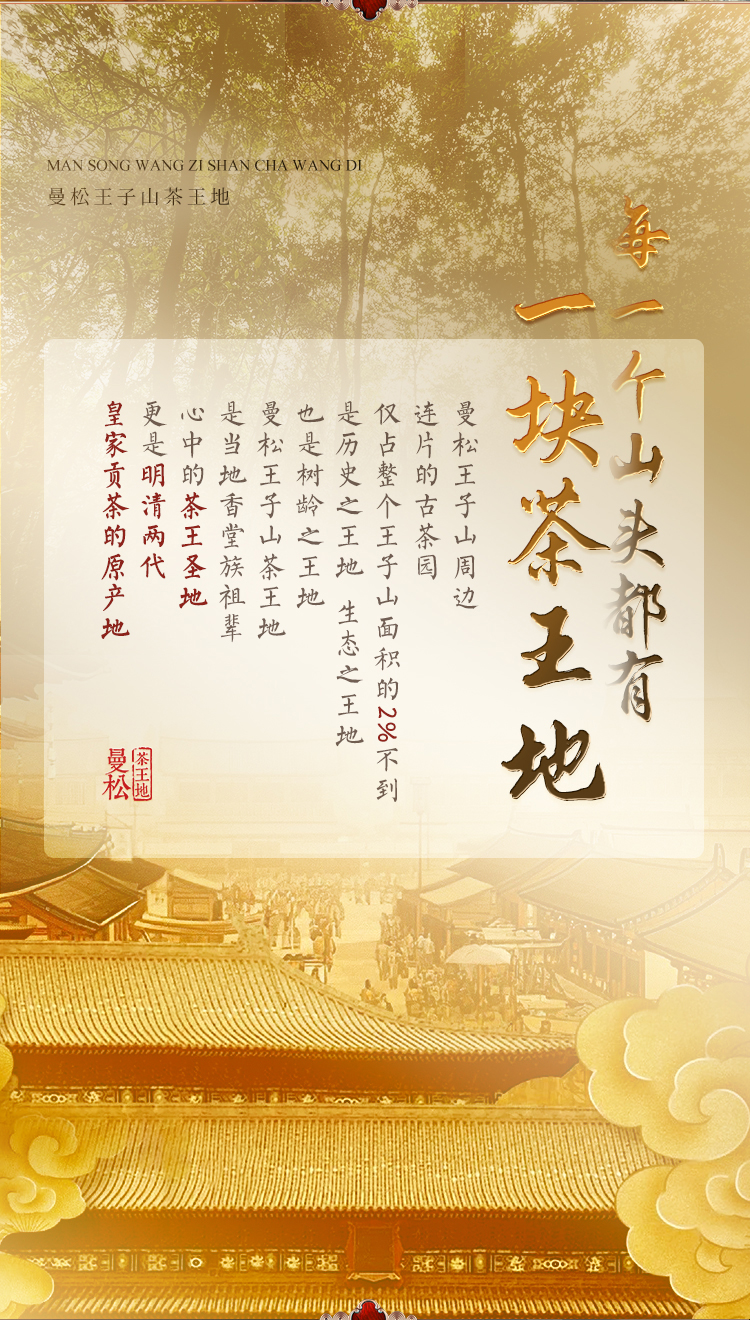 MAN SONG WANG ZI SHAN CHA WANG DI
曼松王子山茶王地
每一个山头都有
一块茶王地
曼松王子山周边
连片的古茶园
仅占整个王子山面积的2%不到
是历史之王地 生态之王地
也是树龄之王地
曼松王子山茶王地
是当地香堂族祖辈
心中的茶王圣地
更是明清两代
皇家贡茶的原产地
茶王地
曼松